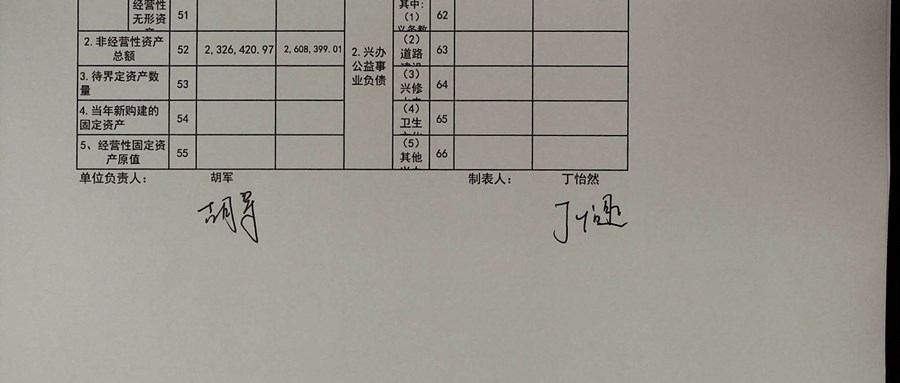 经营性无形资 51 其中:(1) 62
2. 非经营性资产总额 52 2,326,420.97 2,608,399.01 2. 兴办公益事业负债 (2)道路 63
3. 待界定资产数量 53 (3)兴修 64
4. 当年新购建的固定资产 54 (4)卫生 65
5、经营性固定资产原值 55 (5)其他 66
单位负责人: 胡军 制表人: 丁怡然
胡军 丁怡然